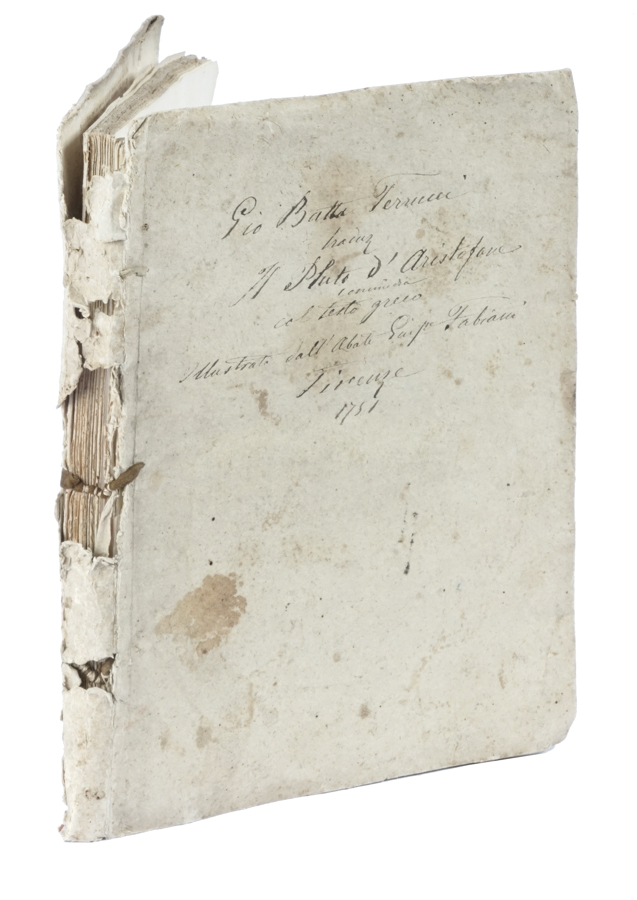 Gio Batta Terrucci
traduz
Il Pluto d' Aristofane
comedia
col testo greco
Illustrata dall' Abate Giusp.e Fabiani
Firenze
1751